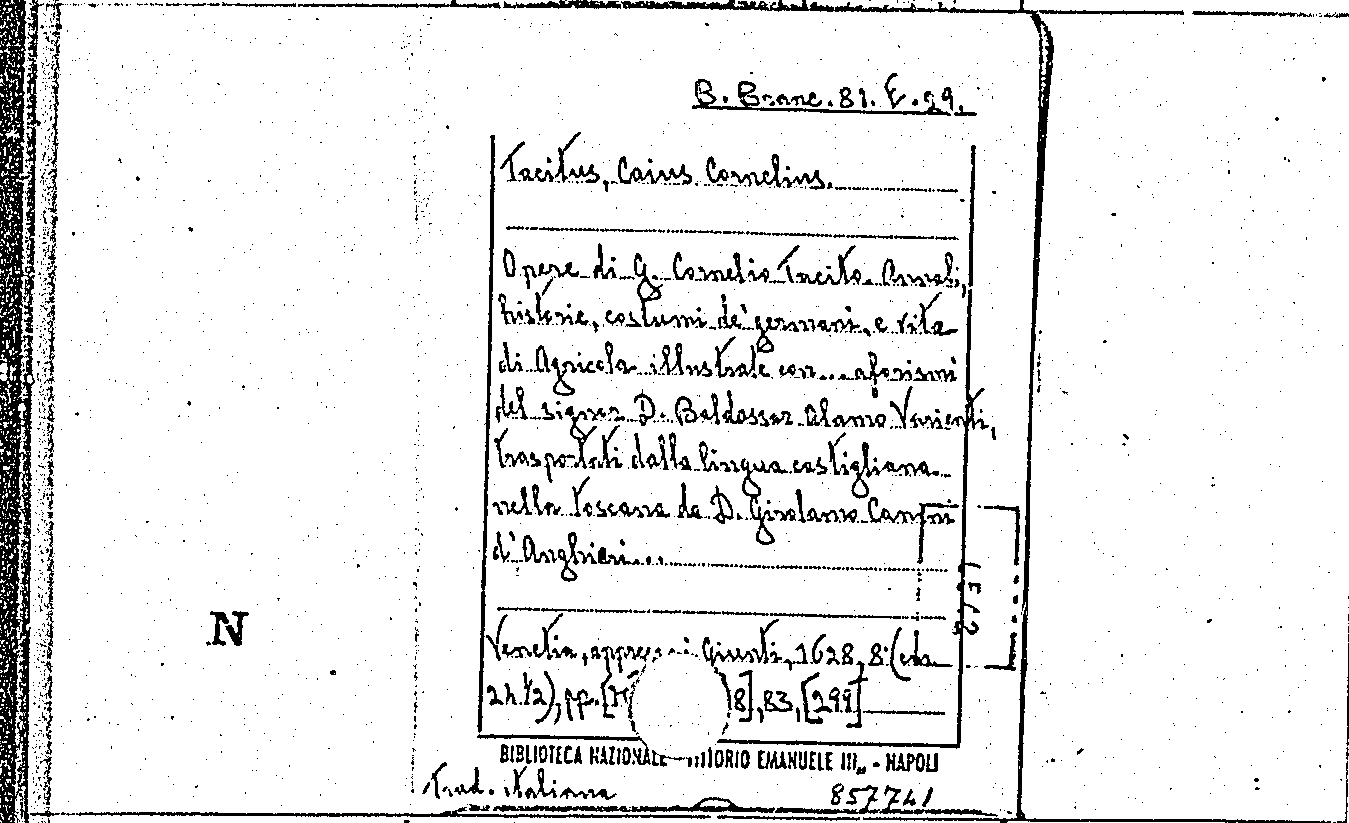 B. Branc. 81. E. 29.
Tacitus, Caius Cornelius.
Opere di G. Cornelio Tacito. Annali,
historie, costumi de' germani, e vita
di Agricola illustrate con... aforismi
del signor D. Baldassar Alamo Varienti,
trasportati dalla lingua castigliana
nella toscana da D. Girolamo Canini
d'Anghiari...
N
Venetia, appresso i Giunti, 1628, 8º (cm.
24 ½), pp. 8], 83, [299]
BIBLIOTECA NAZIONALE VITTORIO EMANUELE III„ - NAPOLI
Trad. italiana 857741